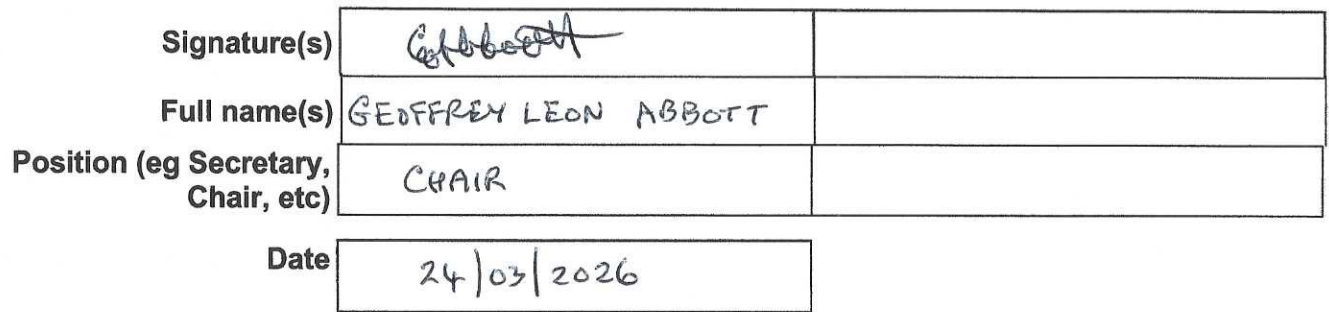 Signature(s)
Full name(s) GEOFFREY LEON ABBOTT
Position (eg Secretary, CHAIR
Chair, etc)
Date 24/03/2026